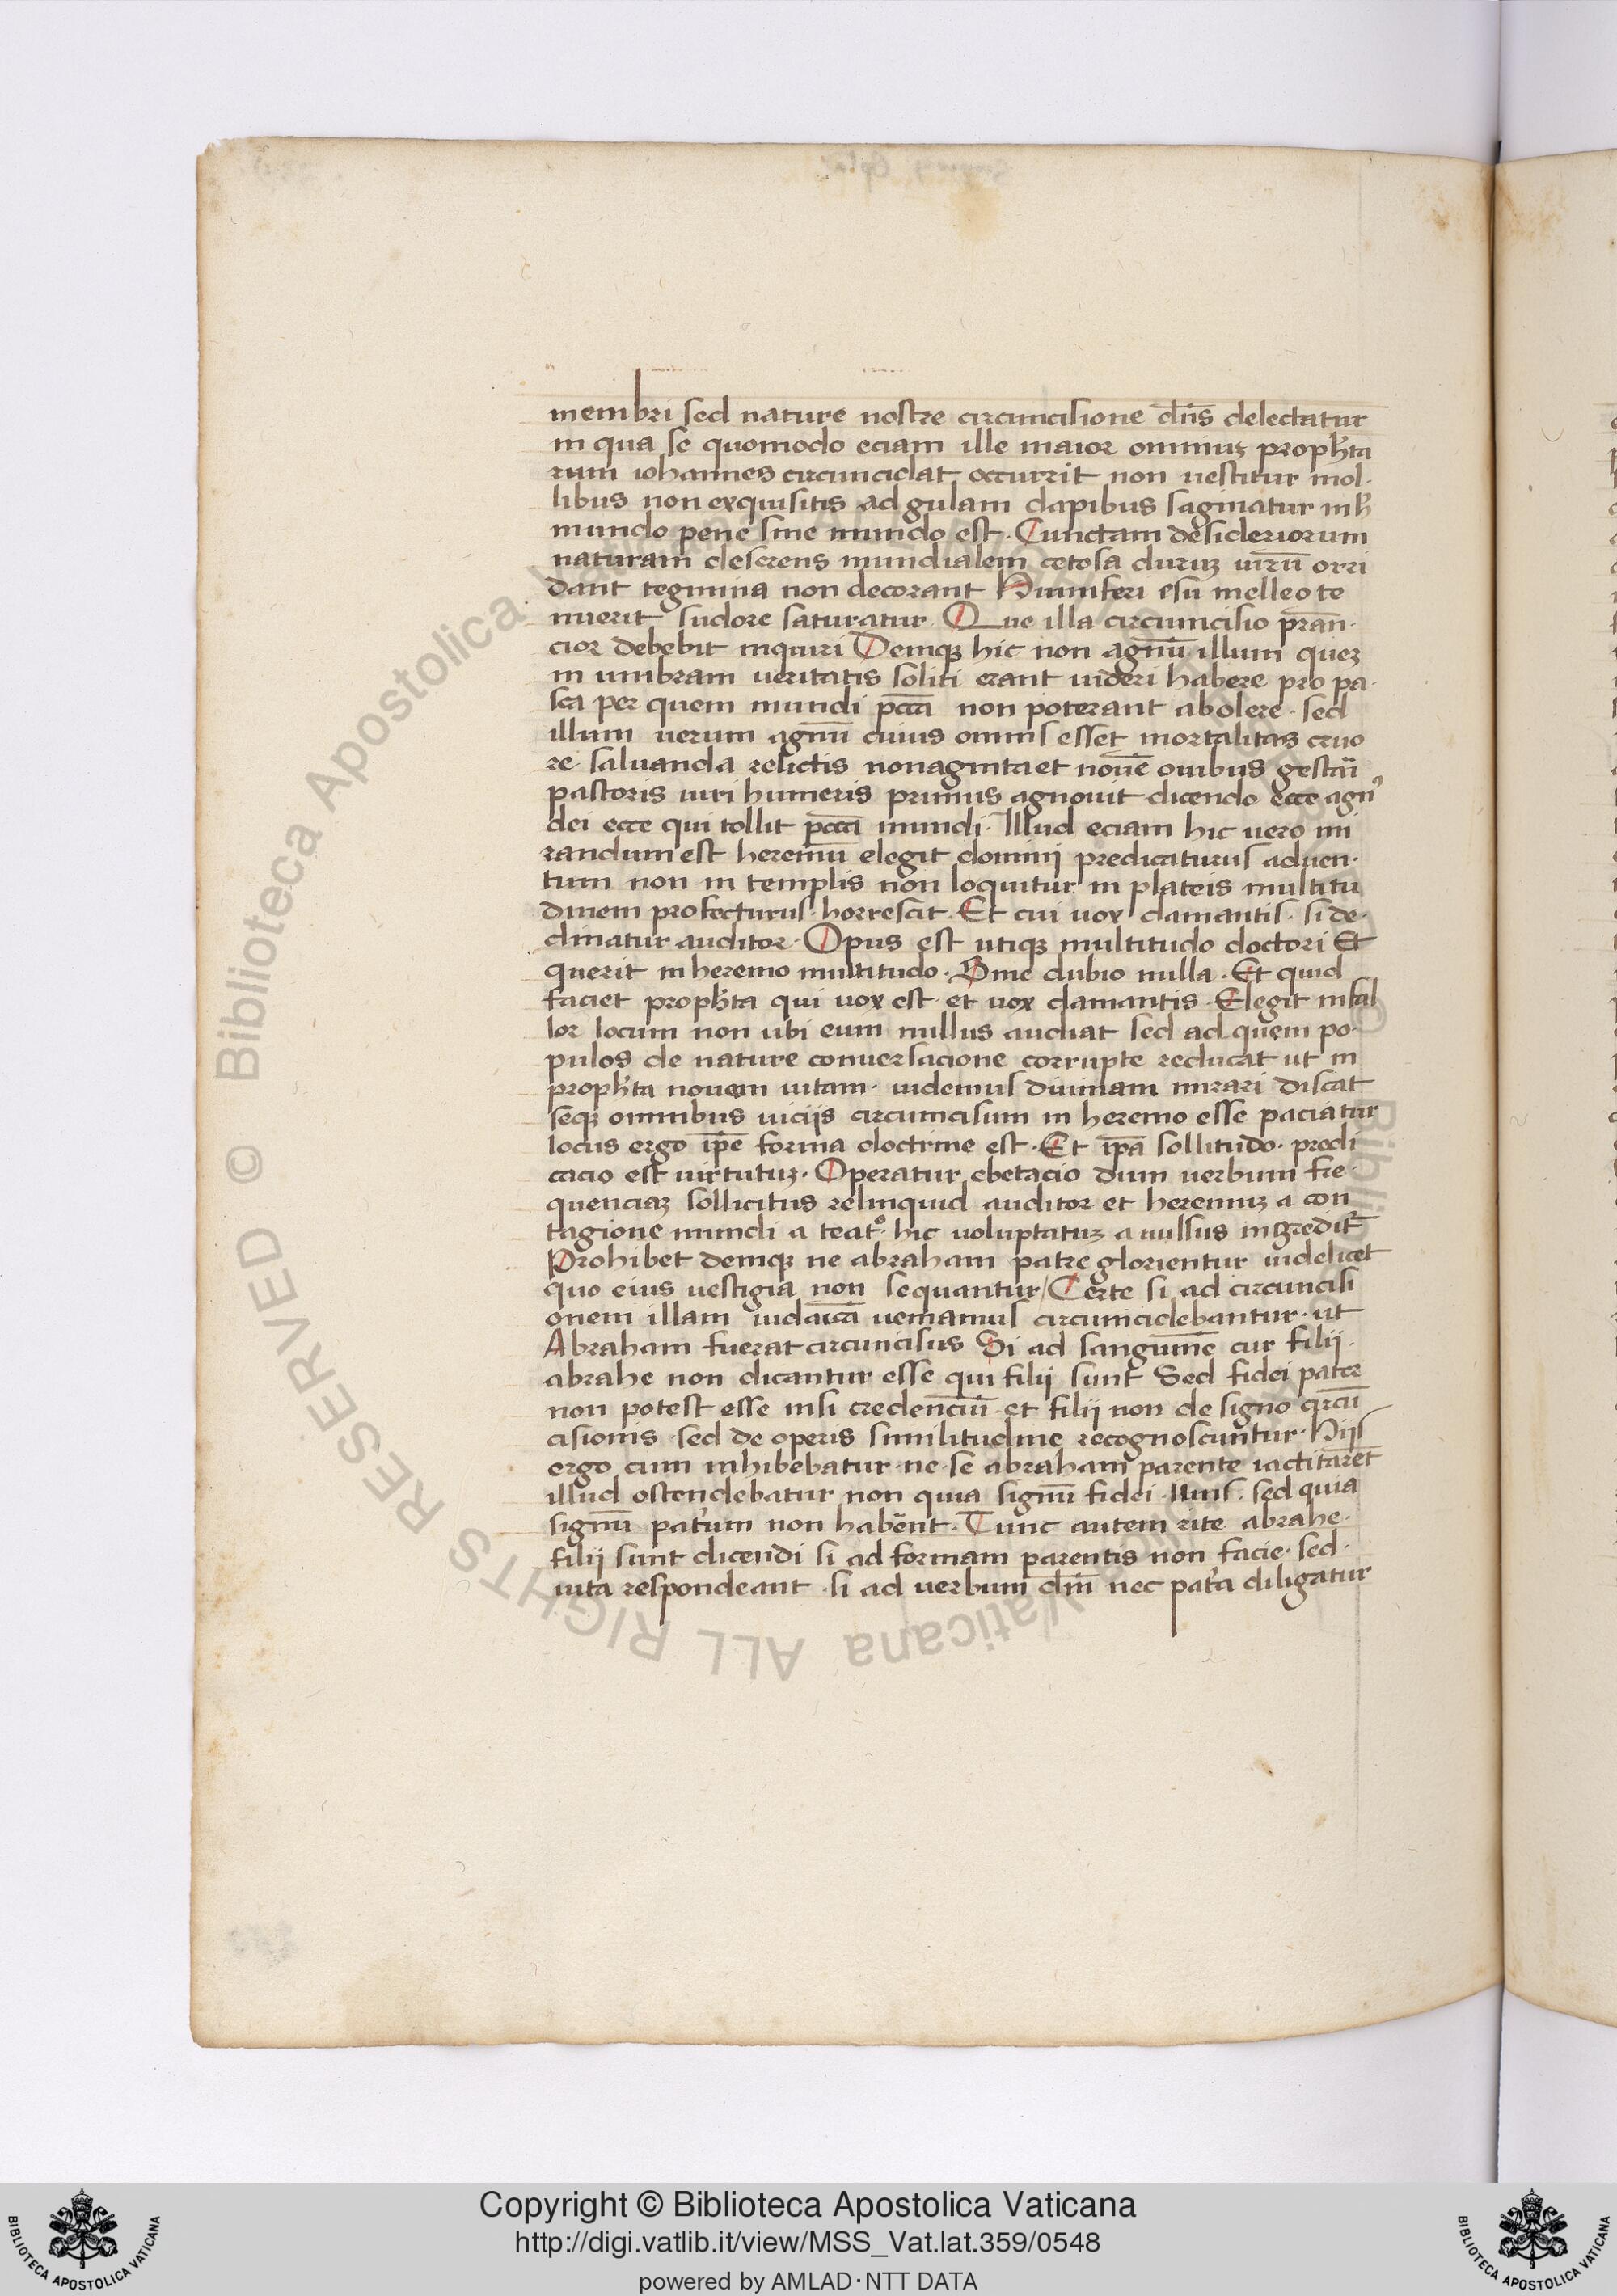 membri sed nature nostre circuncisione dn̄s delectatur
in qua se quomodo eciam ille maior omniuꝫ proph̄ta
rum iohannes circuncidat occurrit non uestitur mol·
libus non exquisitis ad gulam dapibus saginatur in h̄
mundo pene sine mundo est · Cunctam desideriorum
naturam deserens mundialem cetosa duruꝫ uirū orri
dant tegmina non decorant Huimferi esu melleo te
nuerit sudore saturatur Que illa circuncisio pran̄·
cior debebit inquiri Deniqꝫ hic non agnū illum queꝫ
in umbram ueritatis soliti erant uideri habere pro pa·
sca per quem mundi pccā non poterant abolere · sed
illum uerum agnū cuius omnis esset mortalitas cruo
re saluanda relictis nonaginta et nouē ouibus gestāi
pastoris uiri humeris primus agnouit dicendo ecce agn⁹
dei ecce qui tollit pccā mundi · Illud eciam hic uero mi
randum est heremū elegit domini predicaturus aduen·
tum non in templis non loquitur in plateis multitu
dinem profecturus · horrescit · Et cui uox clamantis · si de·
clinatur auditor · Opus est utiqꝫ multitudo doctori Et
querit in heremo multitudo · Sine dubio nulla · Et quid
faciet proph̄ta qui uox est · et uox clamantis · Elegit in fal
lor locum non ubi eum nullus audiat sed ad quem po·
pulos de nature conuersacione corrupte reducat ut in
proph̄ta nouam uitam · uidemus diuinam mirari discat
seqꝫ omnibus uiciis circuncisum in heremo esse paciatur
locus ergo ip̄e forma doctrine est · Et ip̄a sollitudo · predi
cacio est uirtutuꝫ · Operatur ebetacio dum uerbum fre·
quenciaꝫ sollicitus relinquid auditor et heremuꝫ a con
tagione mundi a teat° · hic uoluptatuꝫ a nullus ingredit᷑
Prohibet deniqꝫ ne abraham patre glorientur uidelicet
quo eius uestigia non sequantur / Certe si ad circuncisi
onem illam iudaicā ueniamus circumcidebantur · ut
Abraham fuerat circuncisus Si ad sanguinē cur filii ·
abrahe non dicantur esse qui filij sunt Sed fidei pater
non potest esse insi credenciū · et filij non de signo circū
cisionis · sed de operis similitudine recognoscuntur · Hijs
ergo cum inhibebatur · ne · se abraham parente iactitaret
illud ostendebatur non quia signū fidei · uirs · sed quia
signū patrum non habent · Tunc autem rite abrahe ·
filij sunt dicendi si ad formam parentis non facie · sed ·
uita respondeant · si ad uerbum dm̄ nec patria diligatur
© Biblioteca Apostolica Vaticana ALL RIGHTS RESERVED
Copyright © Biblioteca Apostolica Vaticana
http://digi.vatlib.it/view/MSS_Vat.lat.359/0548
powered by AMLAD·NTT DATA
BIBLIOTECA APOSTOLICA VATICANA
BIBLIOTECA APOSTOLICA VATICANA